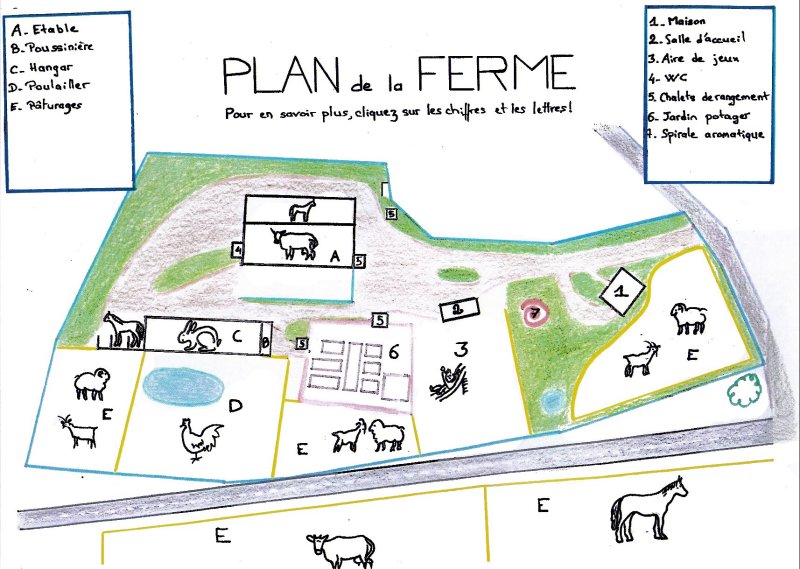 A_ Etable
B_ Poussinière
C_ Hangar
D_ Poulailler
E_ Pâturages
PLAN de la FERME
Pour en savoir plus, cliquez sur les chiffres et les lettres!
1_ Maison
2_ Salle d'accueil
3_ Aire de jeux
4_ WC
5_ Chalets de rangement
6_ Jardin potager
7_ Spirale aromatique
5
4
A
5
1
2
7
5
C
B
5
6
3
E
E
D
E
E
E